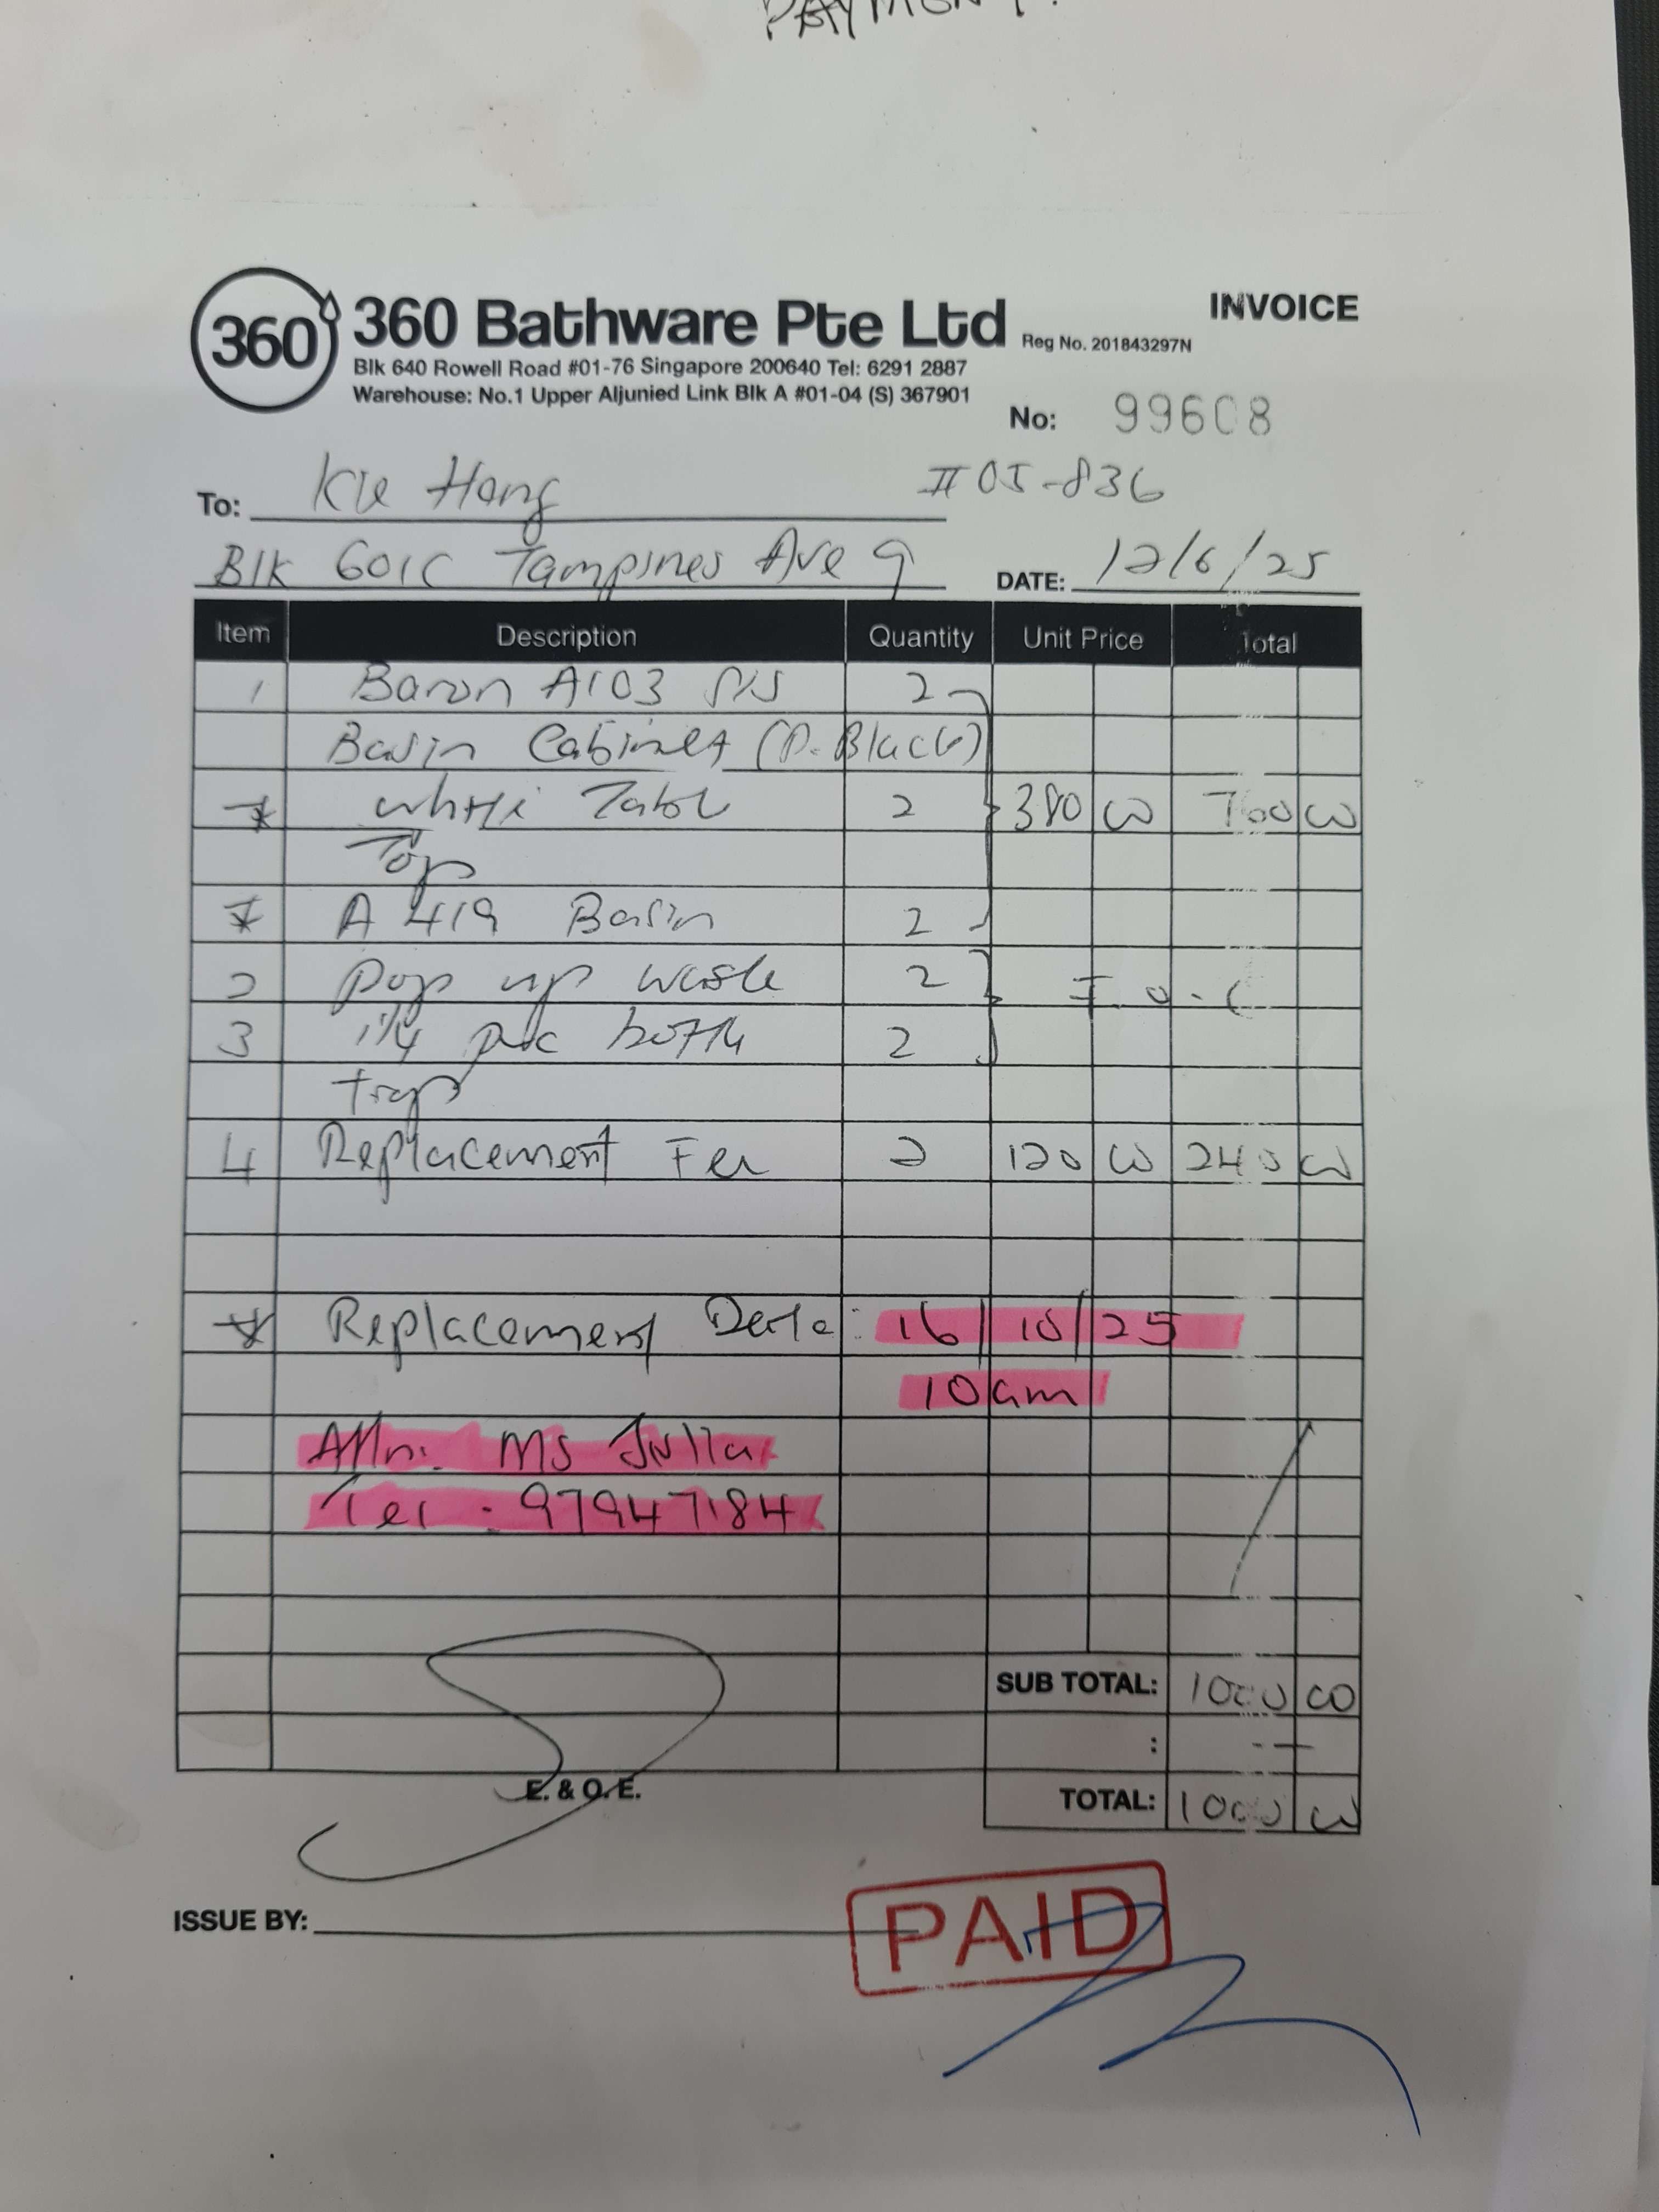 PAYMENT.
360
360 Bathware Pte Ltd Reg No. 201843297N
INVOICE
Blk 640 Rowell Road #01-76 Singapore 200640 Tel: 6291 2887
Warehouse: No.1 Upper Aljunied Link Blk A #01-04 (S) 367901
No: 99608
To: Hong #05-836
Blk 601C Tampines Ave 9 DATE: 12/6/25
Item Description Quantity Unit Price Total
1 Baron A103 S/S 2
Basin Cabinet (P. Black)
* white Table 2 380 00 760 00
Top
* A 419 Basin 2
2 pop up waste 2 F.O.C
3 1 1/4 pvc bottle 2
trap
4 Replacement Fee 2 120 00 240 00
* Replacement Date: 16/10/25
10am
Attn: Ms Julia
Tel: 97947184
SUB TOTAL: 1000 00
: -
TOTAL: 1000 00
E. & O. E.
ISSUE BY:
PAID